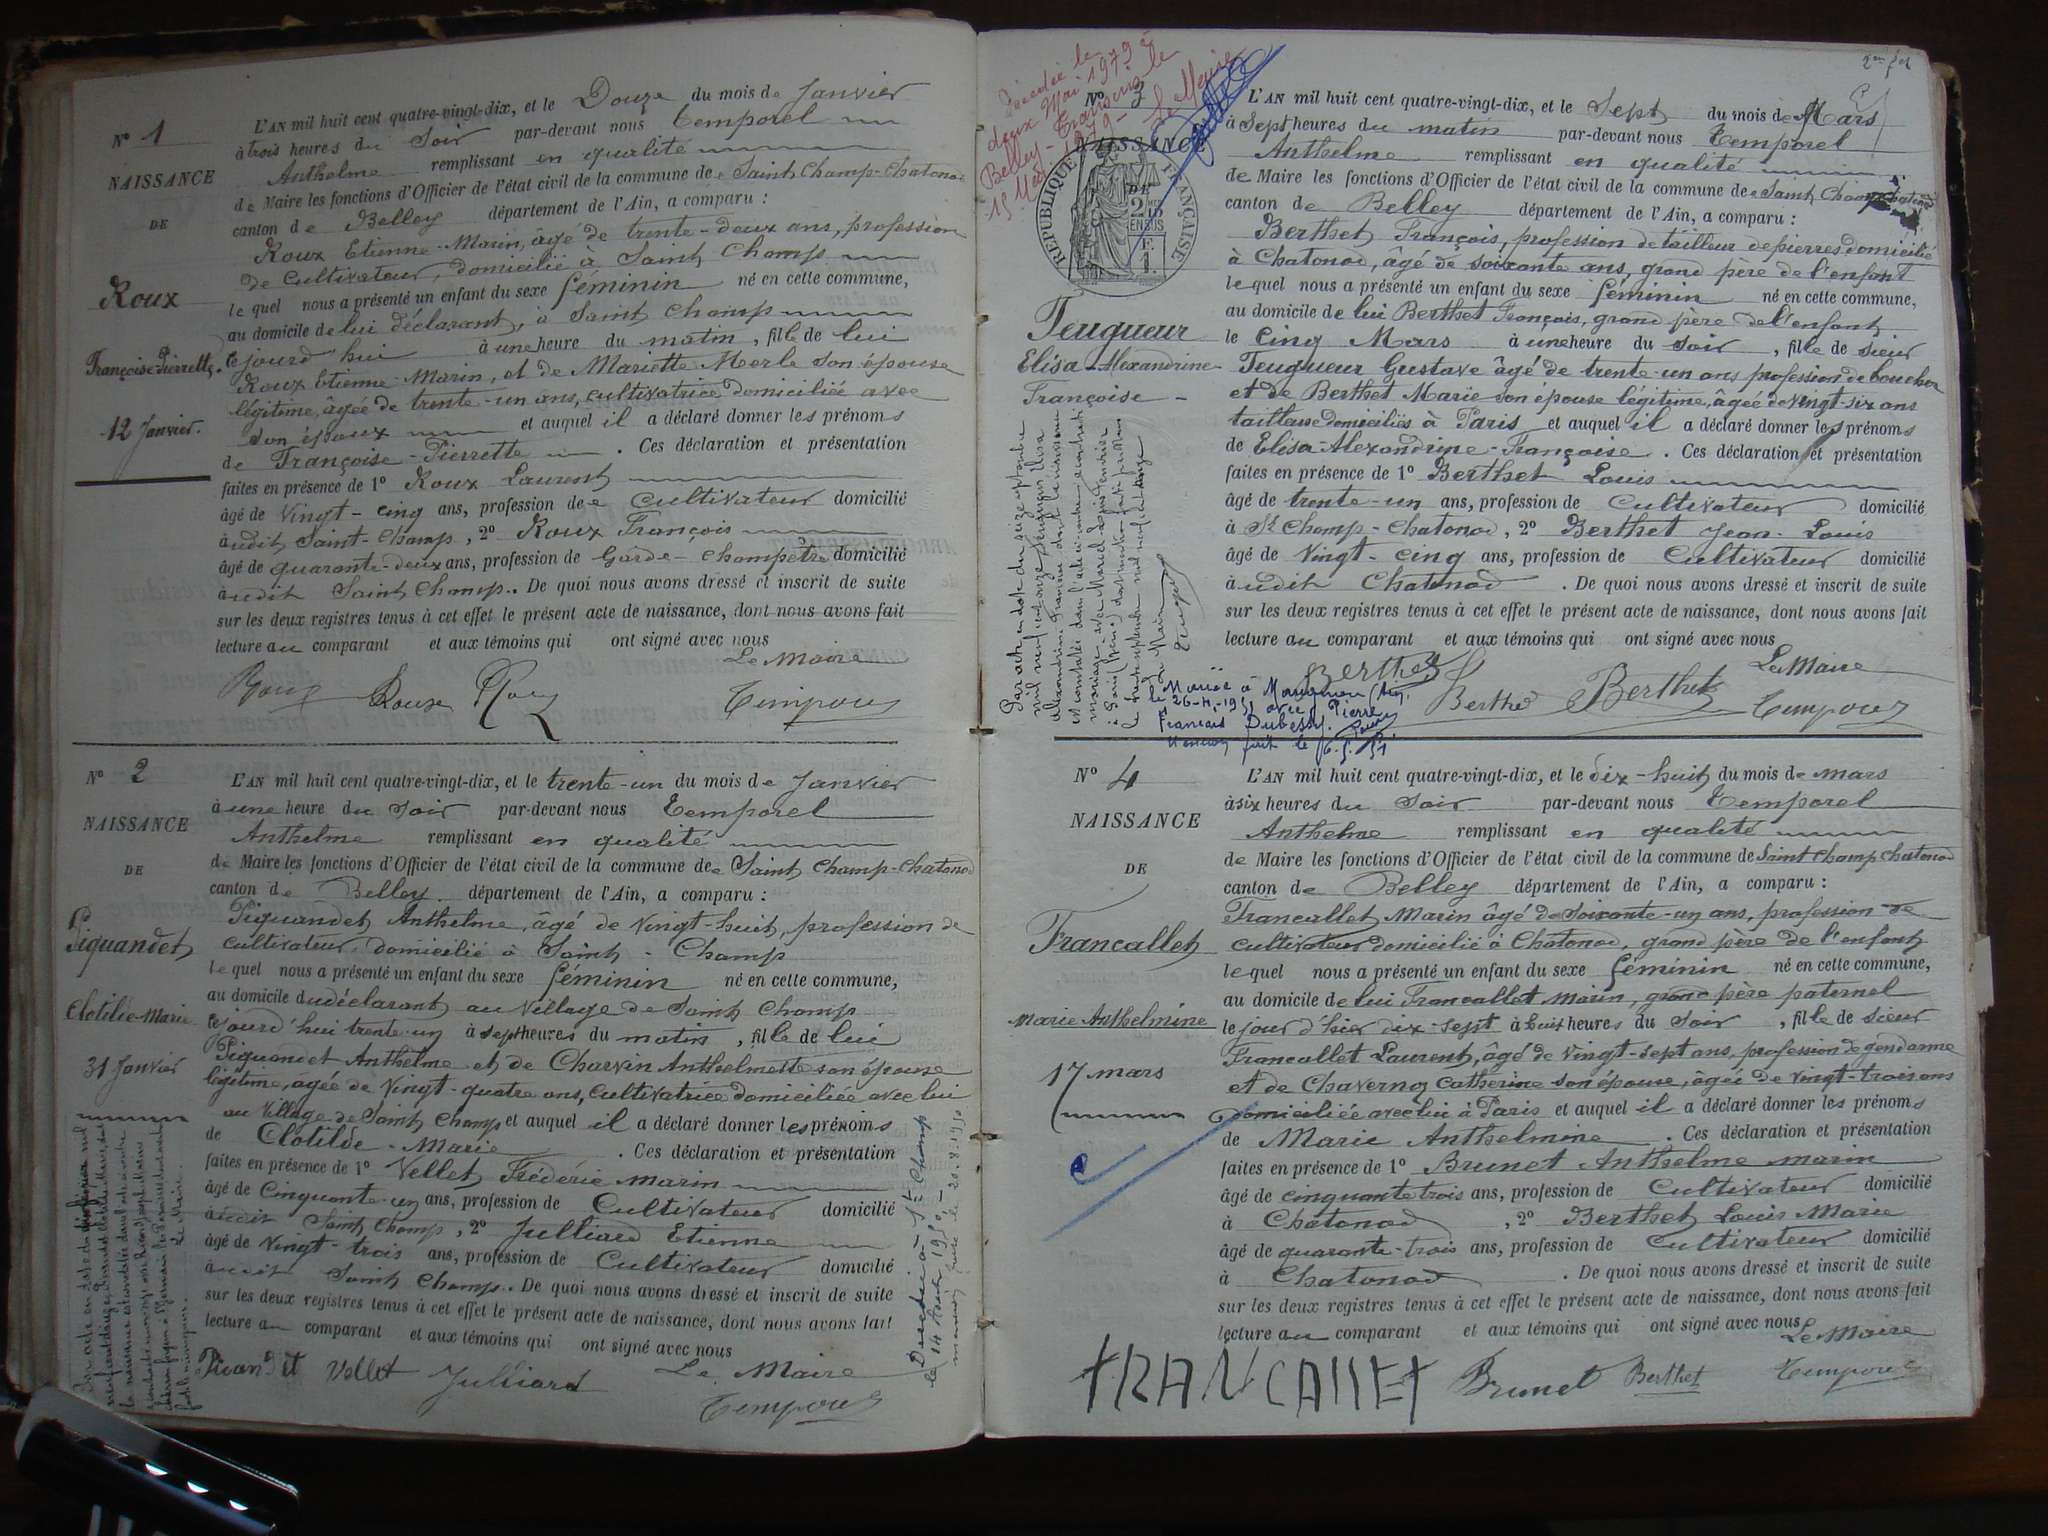 N° 1
NAISSANCE
DE
Roux
Françoise-Pierrette
12 Janvier.
L'AN mil huit cent quatre-vingt-dix, et le Douze du mois de Janvier
à trois heures du Soir par-devant nous Temporel
Anthelme remplissant en qualité
de Maire les fonctions d'Officier de l'état civil de la commune de Saint Champ-Chatonod
canton de Belley département de l'Ain, a comparu :
Roux Etienne-Marin, âgé de trente-deux ans, profession
de Cultivateur, domicilié à Saint Champ
le quel nous a présenté un enfant du sexe féminin né en cette commune,
au domicile de lui déclarant, à Saint Champ
cejourd'hui à une heure du matin, fille de lui
Roux Etienne-Marin, et de Mariette Merle son épouse
légitime, âgée de trente-un ans, cultivatrice domiciliée avec
son époux et auquel il a déclaré donner les prénoms
de Françoise-Pierrette. Ces déclaration et présentation
faites en présence de 1° Roux Laurent
âgé de Vingt-cinq ans, profession de Cultivateur domicilié
audit Saint-Champ, 2° Roux François
âgé de quarante-deux ans, profession de Garde-champêtre domicilié
audit Saint Champ. De quoi nous avons dressé et inscrit de suite
sur les deux registres tenus à cet effet le présent acte de naissance, dont nous avons fait
lecture au comparant et aux témoins qui ont signé avec nous
Le Maire
Roux Roux Roux Temporel
N° 2
NAISSANCE
DE
Piquandet
Clotilde-Marie
31 Janvier
L'AN mil huit cent quatre-vingt-dix, et le trente-un du mois de Janvier
à une heure du Soir par-devant nous Temporel
Anthelme remplissant en qualité
de Maire les fonctions d'Officier de l'état civil de la commune de Saint Champ-Chatonod
canton de Belley département de l'Ain, a comparu :
Piquandet Anthelme, âgé de Vingt-huit, profession de
cultivateur domicilié à Saint-Champ
le quel nous a présenté un enfant du sexe féminin né en cette commune,
au domicile du déclarant au Village de Saint Champ
cejourd'hui trente-un à sept heures du matin, fille de lui
Piquandet Anthelme et de Charvin Anthelmette son épouse
légitime, âgée de Vingt-quatre ans, Cultivatrice domiciliée avec lui
au Village de Saint Champ et auquel il a déclaré donner les prénoms
de Clotilde-Marie. Ces déclaration et présentation
faites en présence de 1° Vellet Frédéric Marin
âgé de Cinquante-un ans, profession de Cultivateur domicilié
audit Saint Champ, 2° Julliard Etienne
âgé de Vingt-trois ans, profession de Cultivateur domicilié
audit Saint Champ. De quoi nous avons dressé et inscrit de suite
sur les deux registres tenus à cet effet le présent acte de naissance, dont nous avons fait
lecture au comparant et aux témoins qui ont signé avec nous
Vellet Julliard Le Maire
Temporel
Décédée à St Champ
le 14 Août 1950
2me fet
Décédée le
deux Mai 1979 à
Belley - Transcris le
15 Mai 1979 - Le Maire
N° 3
NAISSANCE
DE
REPUBLIQUE FRANÇAISE
Teuqueur
Elisa-Alexandrine-
Françoise-
L'AN mil huit cent quatre-vingt-dix, et le Sept du mois de Mars
à sept heures du matin par-devant nous Temporel
Anthelme remplissant en qualité
de Maire les fonctions d'Officier de l'état civil de la commune de Saint Champ Chatonod
canton de Belley département de l'Ain, a comparu :
Berthet François, profession de tailleur de pierres domicilié
à Chatonod, âgé de soixante ans, grand père de l'enfant
le quel nous a présenté un enfant du sexe féminin né en cette commune,
au domicile de lui Berthet François, grand père de l'enfant
le Cinq Mars à une heure du soir, fille de sieur
Teuqueur Gustave âgé de trente-un ans profession de boucher
et de Berthet Marie son épouse légitime, âgée de vingt-six ans
tailleuse domiciliés à Paris et auquel il a déclaré donner les prénoms
de Elisa-Alexandrine-Françoise. Ces déclaration et présentation
faites en présence de 1° Berthet Louis
âgé de trente-un ans, profession de Cultivateur domicilié
à St Champ-Chatonod, 2° Berthet Jean-Louis
âgé de Vingt-cinq ans, profession de Cultivateur domicilié
audit Chatonod. De quoi nous avons dressé et inscrit de suite
sur les deux registres tenus à cet effet le présent acte de naissance, dont nous avons fait
lecture au comparant et aux témoins qui ont signé avec nous
Le Maire
Berthet Berthet Berthet Temporel
Mariée à
le 26-4-1951 avec Pierre
François Dubessy.
N° 4
NAISSANCE
DE
Francallet
Marie Anthelmine
17 mars
L'AN mil huit cent quatre-vingt-dix, et le dix-huit du mois de mars
à six heures du Soir par-devant nous Temporel
Anthelme remplissant en qualité
de Maire les fonctions d'Officier de l'état civil de la commune de Saint Champ Chatonod
canton de Belley département de l'Ain, a comparu :
Francallet Marin âgé de Soixante-un ans, profession de
cultivateur domicilié à Chatonod, grand père de l'enfant
le quel nous a présenté un enfant du sexe féminin né en cette commune,
au domicile de lui Francallet Marin, grand père paternel
le jour d'hier dix-sept à huit heures du Soir, fille de sieur
Francallet Laurent, âgé de Vingt-sept ans, profession de gendarme
et de Chavernoz Catherine son épouse, âgée de Vingt-trois ans
domiciliée avec lui à Paris et auquel il a déclaré donner les prénoms
de Marie Anthelmine. Ces déclaration et présentation
faites en présence de 1° Brunet Anthelme Marin
âgé de cinquante trois ans, profession de Cultivateur domicilié
à Chatonod, 2° Berthet Louis Marie
âgé de quarante-trois ans, profession de Cultivateur domicilié
à Chatonod. De quoi nous avons dressé et inscrit de suite
sur les deux registres tenus à cet effet le présent acte de naissance, dont nous avons fait
lecture au comparant et aux témoins qui ont signé avec nous
Le Maire
FRANCALLET Brunet Berthet Temporel